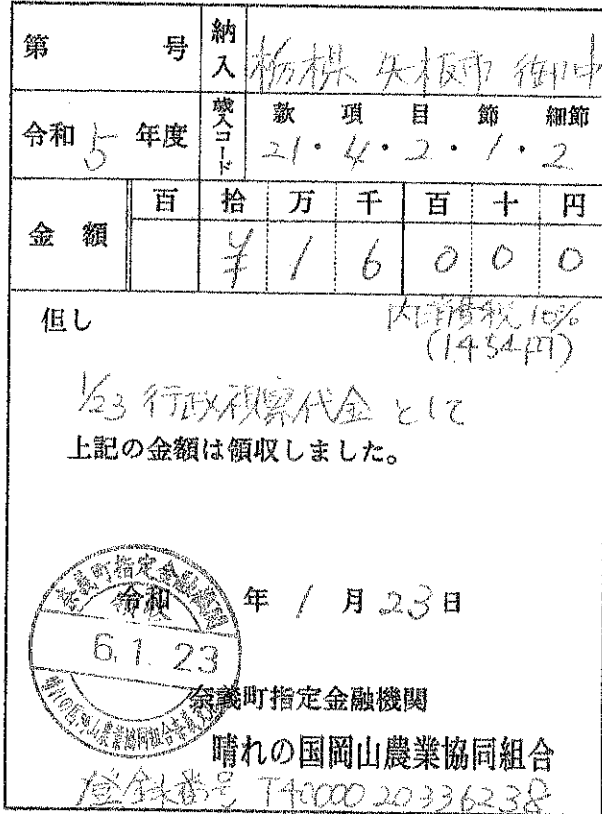 第 号 納入 栃木県 矢板市 御中
令和 5 年度 歳入コード 款 項 目 節 細節
21・4・2・1・2
百 拾 万 千 百 十 円
金 額 ¥ 1 6 0 0 0
但し 内消費税10%
(1454円)
1/23 行政視察代金 として
上記の金額は領収しました。
奈義町指定金融機関
令和 年 1 月 23 日
6. 1. 23
晴れの国岡山農業協同組合奈義支店
奈義町指定金融機関
晴れの国岡山農業協同組合
登録番号 T4000020336238